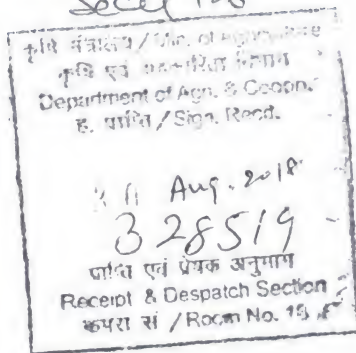 कृषि मंत्रालय / Min. of Agriculture
कृषि एवं सहकारिता विभाग
Department of Agn. & Coopn.
ह. प्राप्ति / Sign. Recd.
Aug. 2018
328519
प्राप्ति एवं प्रेषक अनुभाग
Receipt & Despatch Section
कमरा सं / Room No. 15